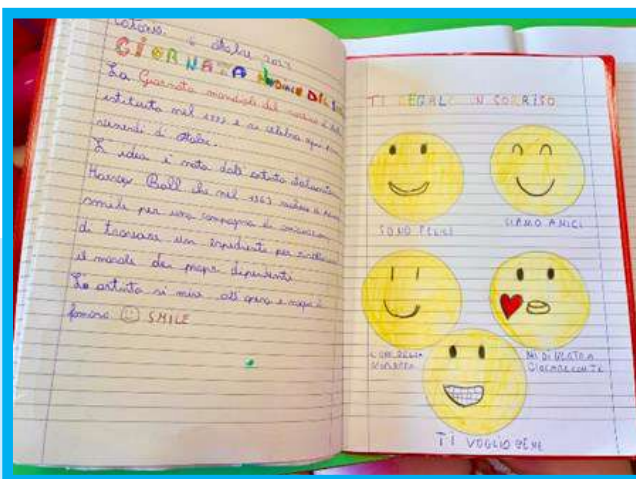 6 ottobre 202
GIORNATA MONDIALE DEL
La Giornata mondiale del sorriso è
istituita nel 1999 e si celebra ogni
venerdì di ottobre.
L'idea è nata dall'artista
Harvey Ball che nel 1963
smile per una campagna di
di trovare un espediente per
il morale dei propri dipendenti
L'artista si mise all'opera e nacque il
famoso SMILE
TI REGALO UN SORRISO
SONO FELICE
SIAMO AMICI
MI DIVERTO A
GIOCARE CON TE
TI VOGLIO BENE